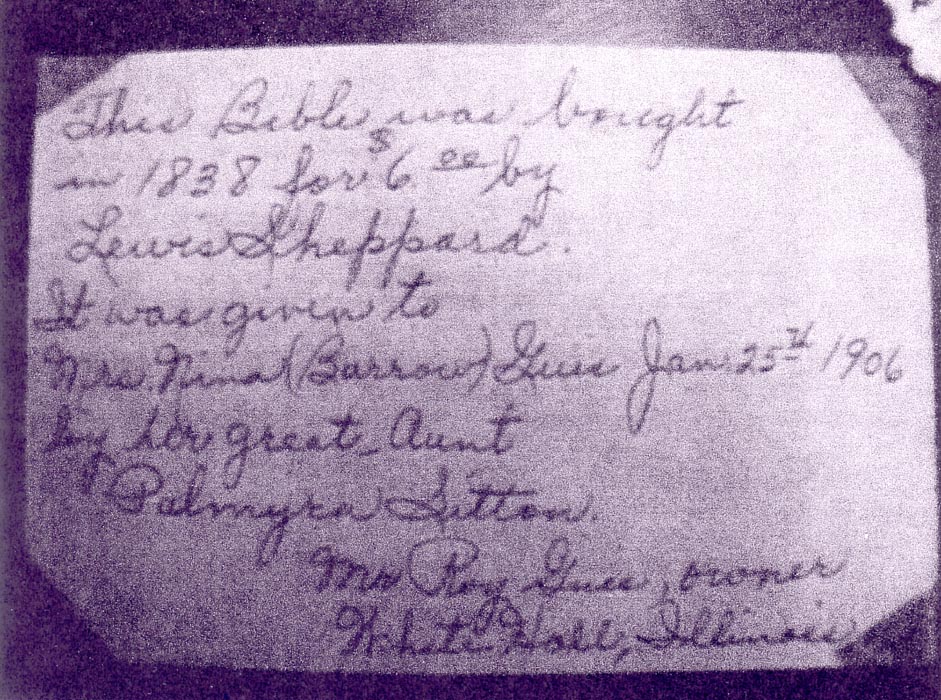 This Bible was bought
in 1838 for $6 00 by
Lewis Sheppard.
It was given to
Mrs. Nina (Barrow) Guis Jan. 25th 1906
by her great-Aunt
Palmyra Sitton.
Mr Roy Guis, owner
White Hall, Illinois